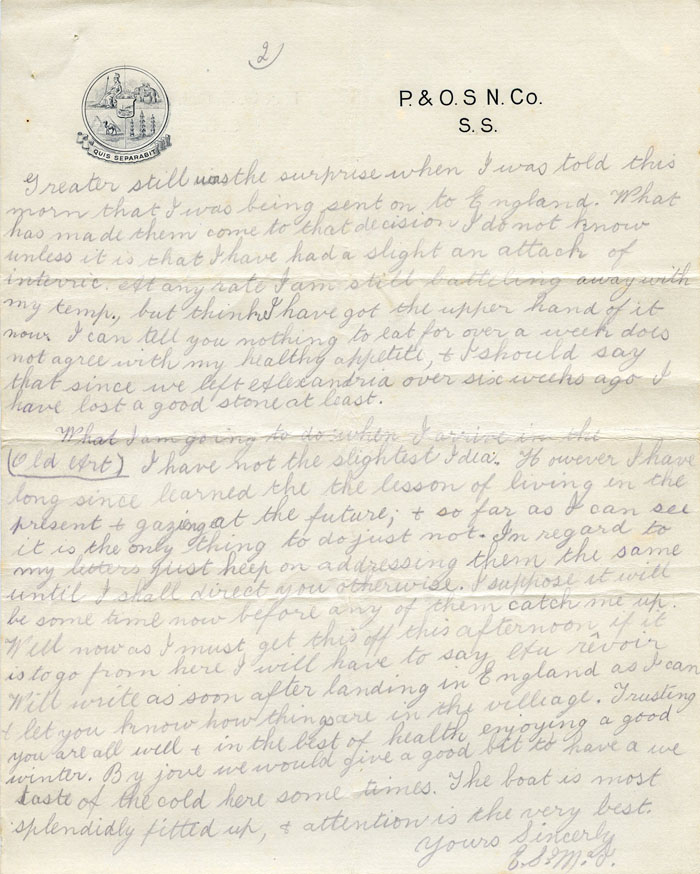 2
QUIS SEPARABIT
P. & O. S N. Co.
S. S.
Greater still was the surprise when I was told this
morn that I was being sent on to England. What
has made them come to that decision I do not know
unless it is that I have had a slight an attack of
interric. At any rate I am still batteling away with
my temp., but think I have got the upper hand of it
now. I can tell you nothing to eat for over a week does
not agree with my healthy appetite, & I should say
that since we left Alexandria over six weeks ago I
have lost a good stone at least.
What I am going to do when I arrive in the
(Old Art) I have not the slightest Idea. However I have
long since learned the the lesson of living in the
present & gazeing at the future; & so far as I can see
it is the only thing to do just not. In regard to
my letters just keep on addressing them the same
until I shall direct you otherwise. I suppose it will
be some time now before any of them catch me up.
Well now as I must get this off this afternoon if it
is to go from here I will have to say Au rêvoir
Will write as soon after landing in England as I can
& let you know how things are in the villeage. Trusting
you are all well & in the best of health enjoying a good
winter. By jove we would give a good bit to have a we
taste of the cold here some times. The boat is most
splendidly fitted up, & attention is the very best.
Yours Sincerly